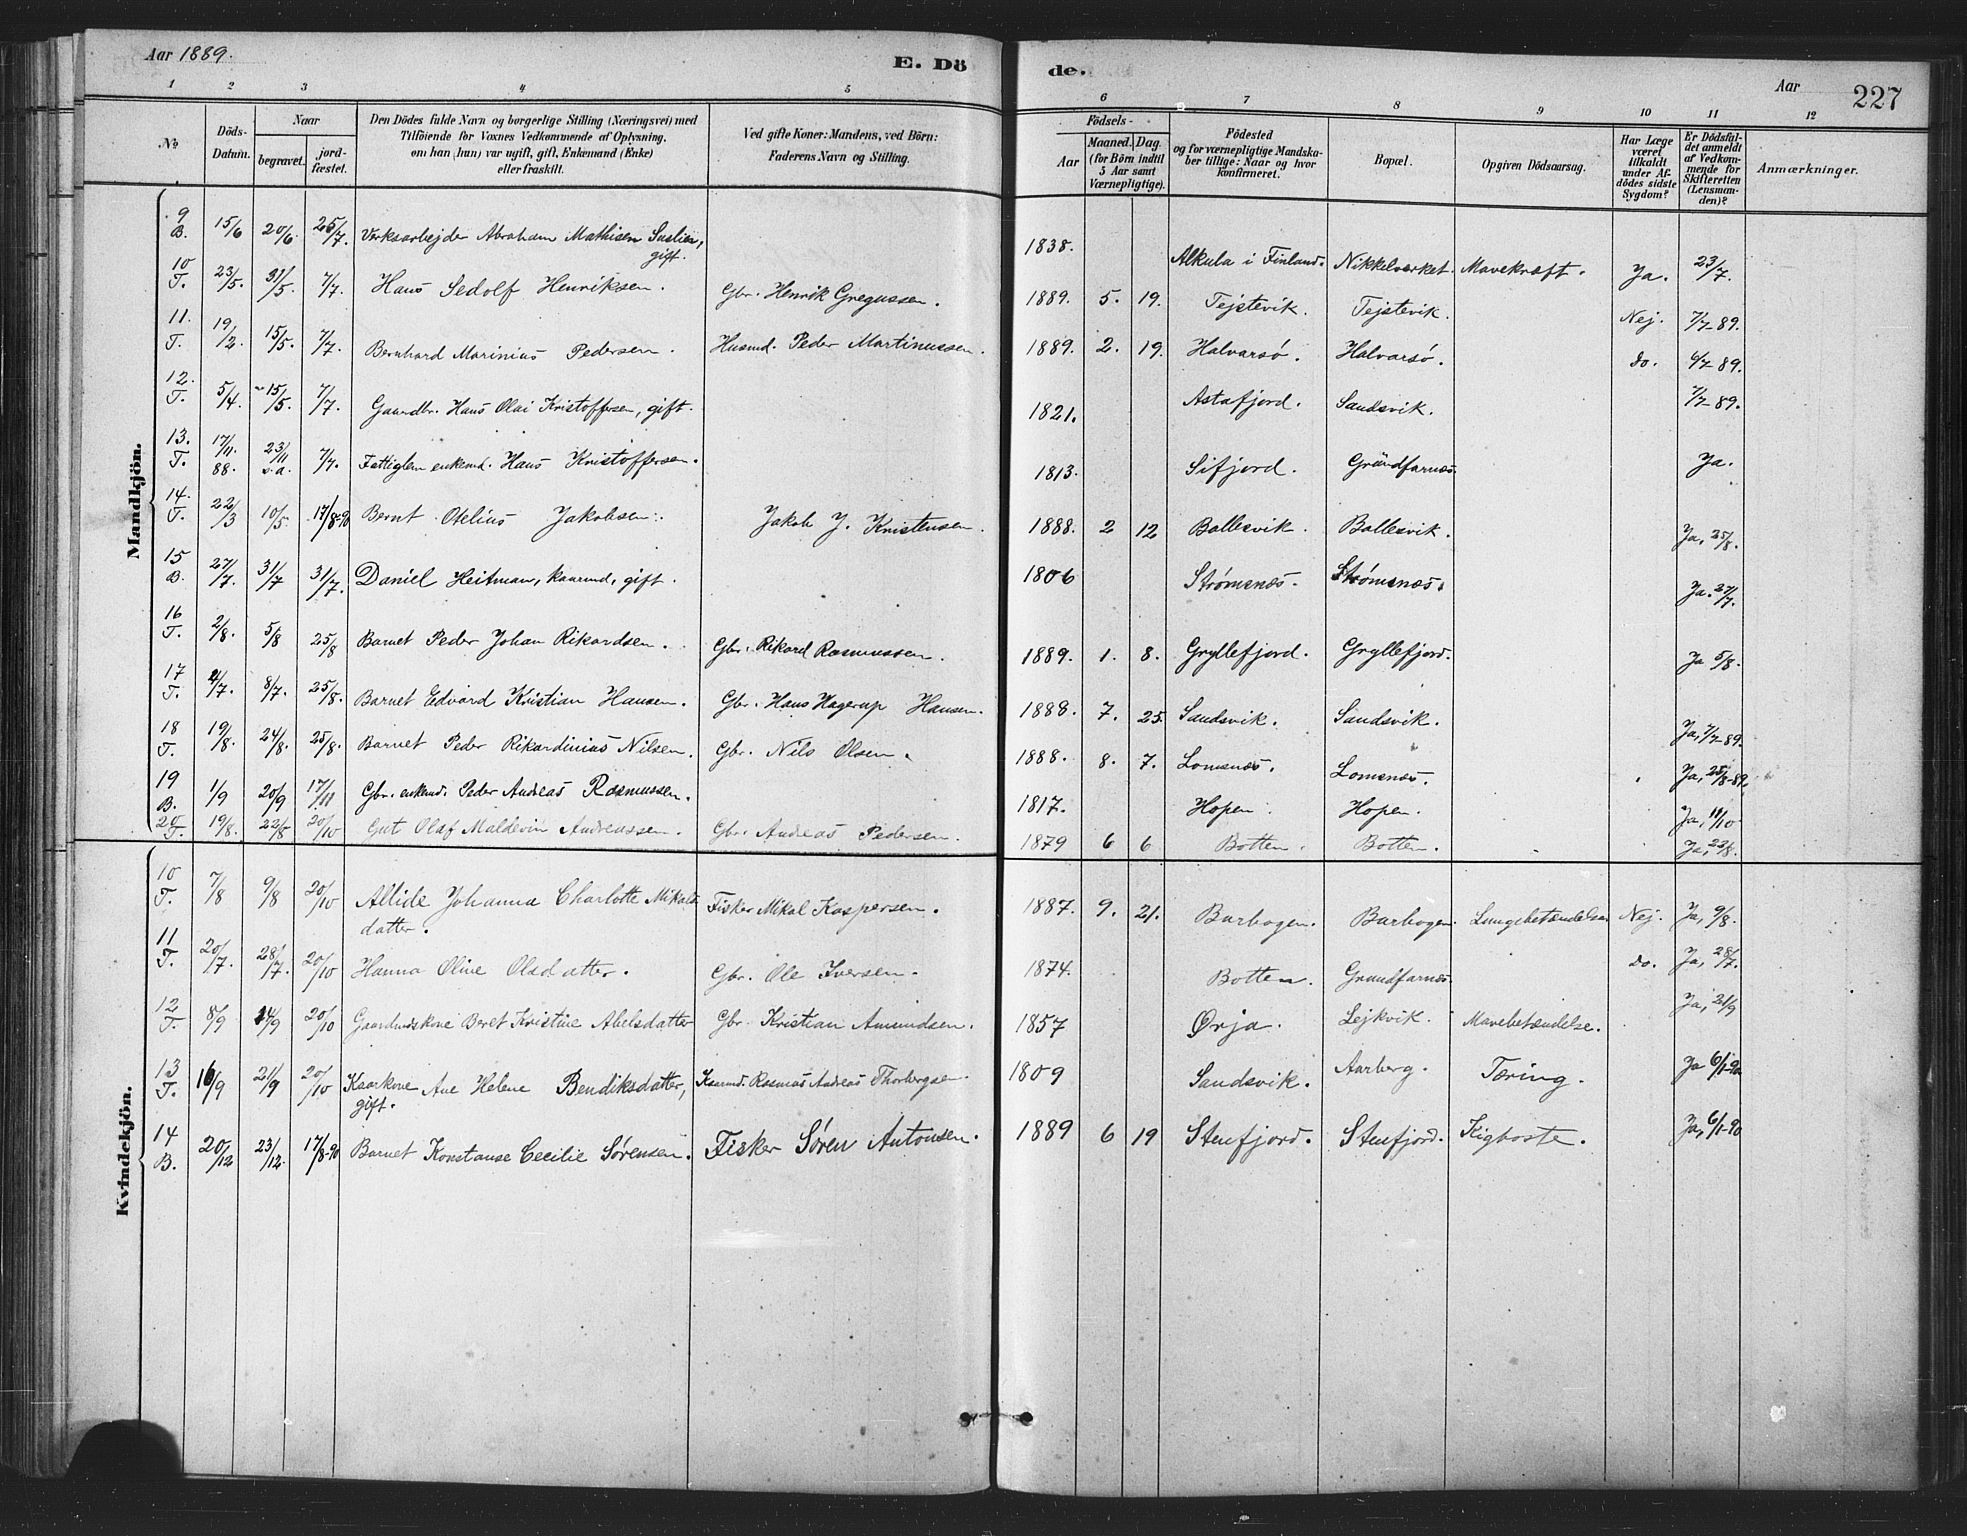 Aar 1889.
E. Dö de.
Aar
227
1 2 3 4 5 6 7 8 9 10 11 12
No.
Döds-Datum.
Naar
begravet.
jord-fæstet.
Den Dödes fulde Navn og borgerlige Stilling (Næringsvei) med
Tilföiende for Voxnes Vedkommende af Oplysning,
om han (hun) var ugift, gift, Enkemand (Enke)
eller fraskilt.
Ved gifte Koner: Mandens, ved Börn:
Faderens Navn og Stilling.
Födsels-
Aar
Maaned. Dag.
(for Börn indtil
5 Aar samt
Værnepligtige).
Födested
og for værnepligtige Mandska-
ber tillige: Naar og hvor
konfirmeret.
Bopæl.
Opgiven Dödsaarsag.
Har Læge
været
tilkaldt
under Af-
dödes sidste
Sygdom?
Er Dödsfal-
det anmeldt
af Vedkom-
mende for
Skifteretten
(Lensman-
den)?
Anmærkninger.
Mandkjön.
9 B. 15/6 20/6. 25/7. Verksarbejder Abraham Mathisen gift. 1838. Alkula i Finland. Nikkelværket. Mavekræft. Ja. 23/7.
10 T. 23/5. 31/5. 7/7. Hans Sedolf Henriksen. Gbr. Henrik Gregussen. 1889. 5. 19. Tejstevik. Tejstevik. Nej. 7/7-89.
11. T. 19/2. 15/5. 7/7. Bernhard Marinius Pedersen. Husmd. Peder Martinussen. 1889. 2. 19. Halvarsø. Halvarsø. do. 6/7-89.
12. T. 5/4. 15/5. 7/7. Gaardbr. Hans Olai Kristoffersen, gift. 1821. Astafjord. Sandsvik. 7/7-89.
13. T. 17/11. 88. 23/11 s.a. 7/7. Fattiglem enkemd. Hans Kristoffersen. 1813. Sifjord. Grundfarnæs. Ja.
14. T. 22/3 10/5. 17/8-90 Bernt Otelius Jakobsen. Jakob J. Kristensen. 1888. 2 12 Ballesvik. Ballesvik. Ja, 25/8.
15 B. 27/7. 31/7 31/7. Daniel Heitman, kaarmd, gift. 1806 Strømsnæs. Strømsnæs. Ja. 27/7.
16 T. 2/8. 5/8 25/8 Barnet Peder Johan Rikardsen. Gbr. Rikard Rasmussen. 1889. 1. 8. Gryllefjord. Gryllefjord. Ja 5/8.
17 T. 4/7. 8/7. 25/8. Barnet Edvard Kristian Hansen. Gbr. Hans Hagerup Hansen. 1888. 7. 25. Sandsvik. Sandsvik. Ja, 7/7-89.
18 T. 19/8. 24/8. 25/8. Barnet Peder Rikardinius Nilsen. Gbr. Nils Olsen. 1888. 8. 7. Lomsnæs. Lomsnæs. Ja, 25/8-89.
19 B. 1/9 20/9 17/11 Gbr. enkemd. Peder Andreas Rasmussen. 1817. Hopen. Hopen. Ja, 11/10
20 T. 19/8. 22/8 20/10 Gut Olaf Maldevin Andreassen. Gbr. Andreas Pedersen. 1879 6 6 Botten. Botten. Ja, 23/8.
Kvindekjön.
10 T. 7/8 9/8 20/10 Allide Johanna Charlotte Mikals
datter. Fisker Mikal Kaspersen. 1887. 9. 21. Barbogen. Barbogen. Lungebetændelse Nej. Ja, 9/8.
11 T. 20/7. 28/7. 20/10 Hanna Oline Olsdatter. Gbr. Ole Iversen. 1874. Botten. Grundfarnæs. do. Ja, 28/7.
12 T. 8/9 14/9 20/10 Gaardmdskone Beret Kristine Abelsdatter Gbr. Kristian Amundsen. 1857 Ørja. Lejkvik. Mavebetændelse. Ja, 21/9
13 T. 16/9 21/9 20/10 Kaarkone Ane Helene Bendiksdatter,
gift. Kaarmd. Rasmus Andreas Thorbergsen. 1809 Sandsvik. Aarberg. Tæring. Ja 6/1-90
14 B. 20/12 23/12. 17/8-90 Barnet Konstanse Cecilie Sørensen. Fisker Søren Antonsen. 1889 6 19 Stenfjord. Stenfjord. Kighoste. Ja, 6/1-90